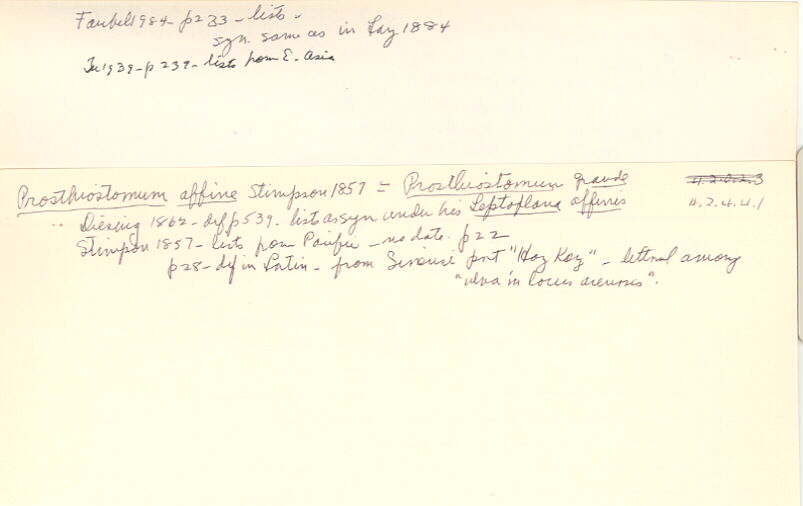 Faubel 1984 - p233 - lists -
syn. same as in Lang 1884
Tu 1939 - p 237 - lists from E. Asia
Prosthiostomum affine Stimpson 1857 = Prosthiostomum grande
4.2.0.2.3
Diesing 1862 - def p539 - list as syn under his Leptoplana affinis
4.2.4.4.1
Stimpson 1857 - lists from Pacific - no date. p22
p28 - def in Latin - from port "Hong Kong" - littoral among
"ulva in locus arenosis".